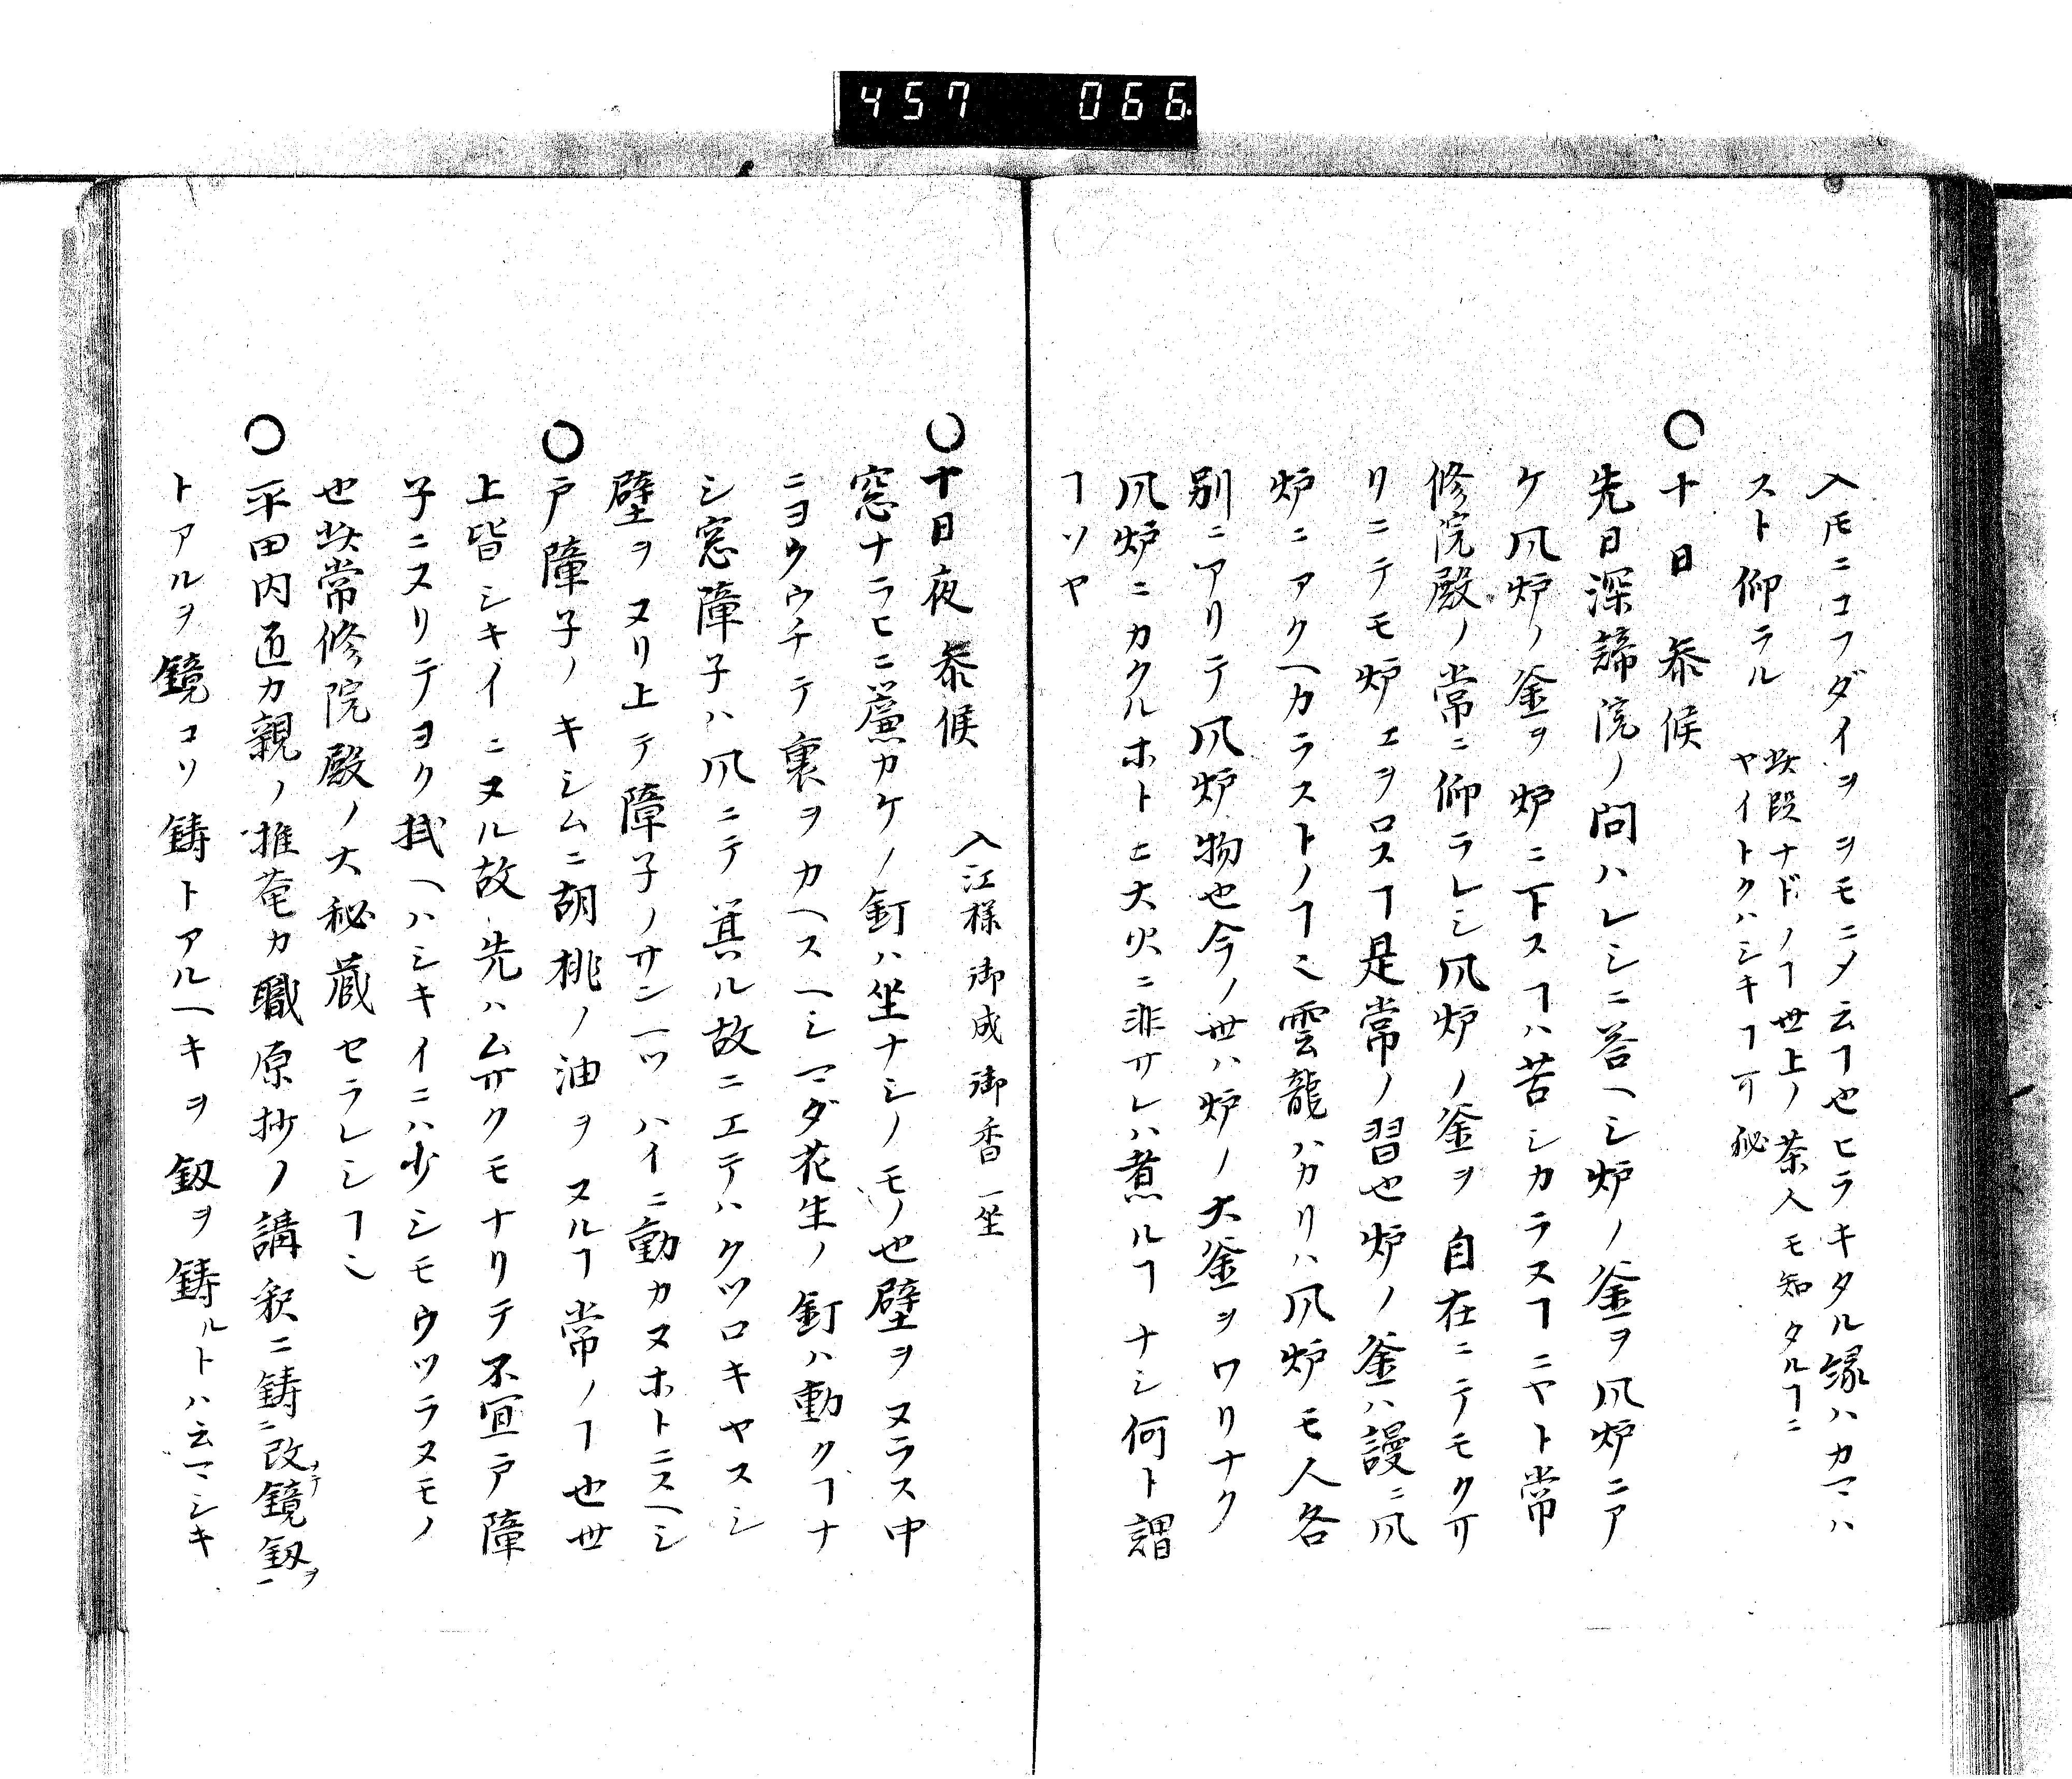 457 066
入ルニコフダイヲヲモニメ云ヿ也ヒラキタル縁ハカマハ
スト仰ラル
此段ナドノヿ世上ノ茶人モ知タルヿニ
ヤイトクハシキヿ可秘
〇十日 参候
先日深諦院ノ問ハレシニ答ヘシ炉ノ釜ヲ風炉ニア
ケ風炉ノ釜ヲ炉ニ下スヿハ苦シカラスヿニヤト常
修院殿ノ常ニ仰ラレシ風炉ノ釜ヲ自在ニテモクサ
リニテモ炉エヲロスヿ是常ノ習也炉ノ釜ハ謾ニ風
炉ニアクヘカラストノヿ也雲龍ハカリハ風炉モ人各
別ニアリテ風炉物也今ノ世ハ炉ノ大釜ヲワリナク
風炉ニカクルホトニ大火ニ非サレハ煮ルヿナシ何ト謂
ヿソヤ
〇十日夜 参候 入江様御成御香一坐
窓ナラヒニ簾カケノ釘ハ坐ナシノモノ也壁ヲヌラス中
ニヨウウチテ裏ヲカヘスヘシマダ花生ノ釘ハ動クヿナ
シ窓障子ハ風ニテ箕ル故ニエテハクツロキヤスシ
壁ヲヌリ上テ障子ノサン一ツハイニ動カヌホトニスヘシ
〇戸障子ノキシムニ胡桃ノ油ヲヌルヿ常ノヿ也世
上皆シキイニヌル故先ハムサクモナリテ不宜戸障
子ニスリテヨク拭ヘハシキイニハ少シモウツラヌモノ
也此常修院殿ノ大秘蔵セラレシヿ也
〇平田内匠カ親ノ推菴カ職原抄ノ講釈ニ鋳ニ改メテ鏡釼ヲ一
トアルヲ鏡コソ鋳トアルヘキヲ釼ヲ鋳ルトハ云マシキ